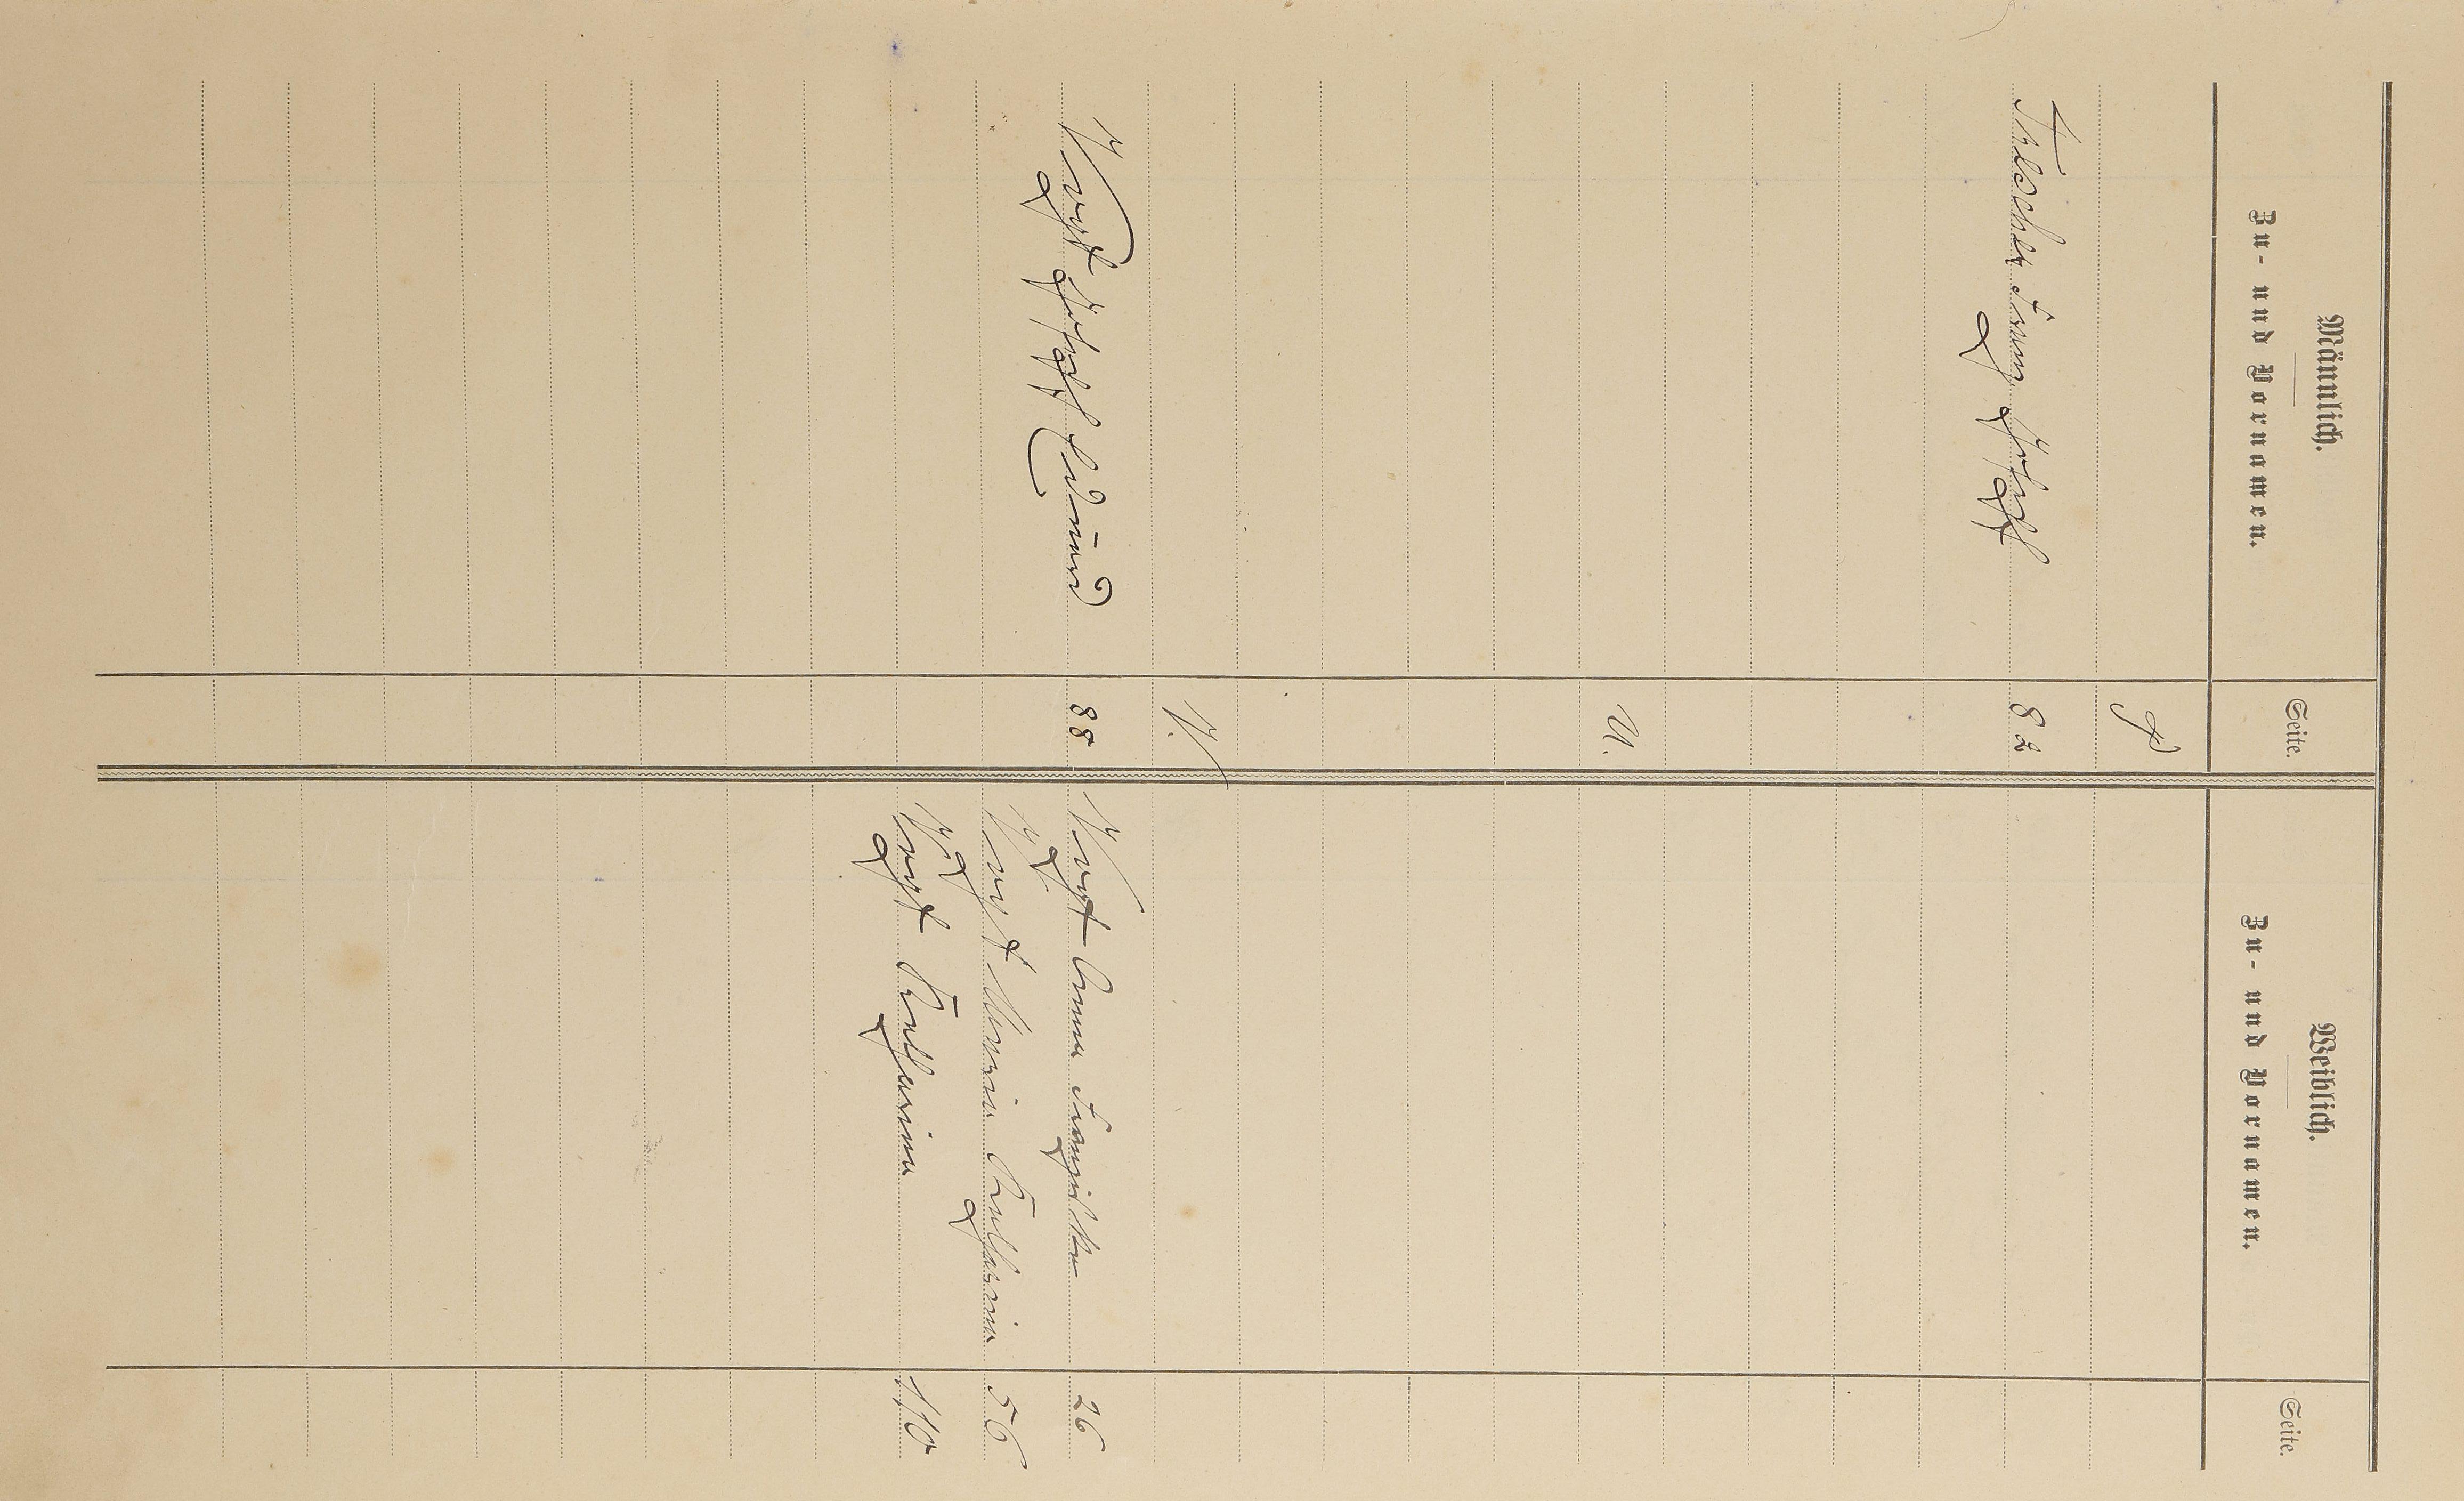 Männlich. Weiblich.
Zu- und Vornamen. Seite. Zu- und Vornamen. Seite.
T
Franz Joseph 82
U.
V.
Vogt Joseph Eduard 88 Vogt Anna Franziska 26
Vogt Maria Katharina 56
Vogt Katharina 110